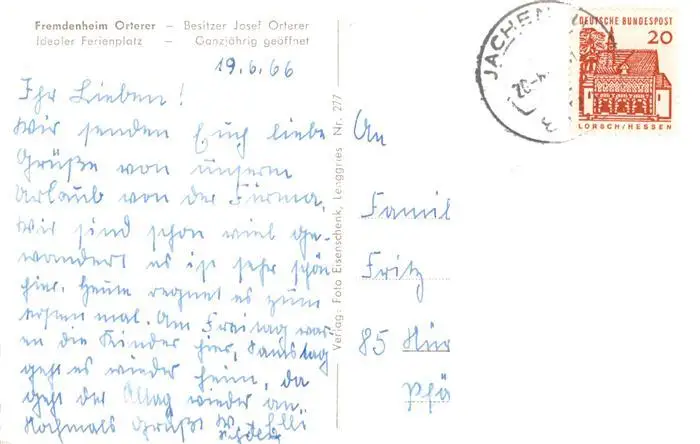 Fremdenheim Orterer – Besitzer Josef Orterer
Idealer Ferienplatz – Ganzjährig geöffnet
19.6.66
Ihr Lieben!
Wir senden Euch liebe
Grüße von unserm
Urlaub von der Firma,
wir sind schon viel ge-
wandert es ist sehr schön
hier, heute regnet es zum
ersten mal. Am Freitag war-
en die Kinder hier, Samstag
geht es wieder heim, da
geht der Alltag wieder an.
Nochmals Grüße
Elli
Verlag: Foto Eisenschenk, Lenggries Nr. 277
JACHEN
DEUTSCHE BUNDESPOST
20
LORSCH/HESSEN
An
Famil
Fritz
85 Nür